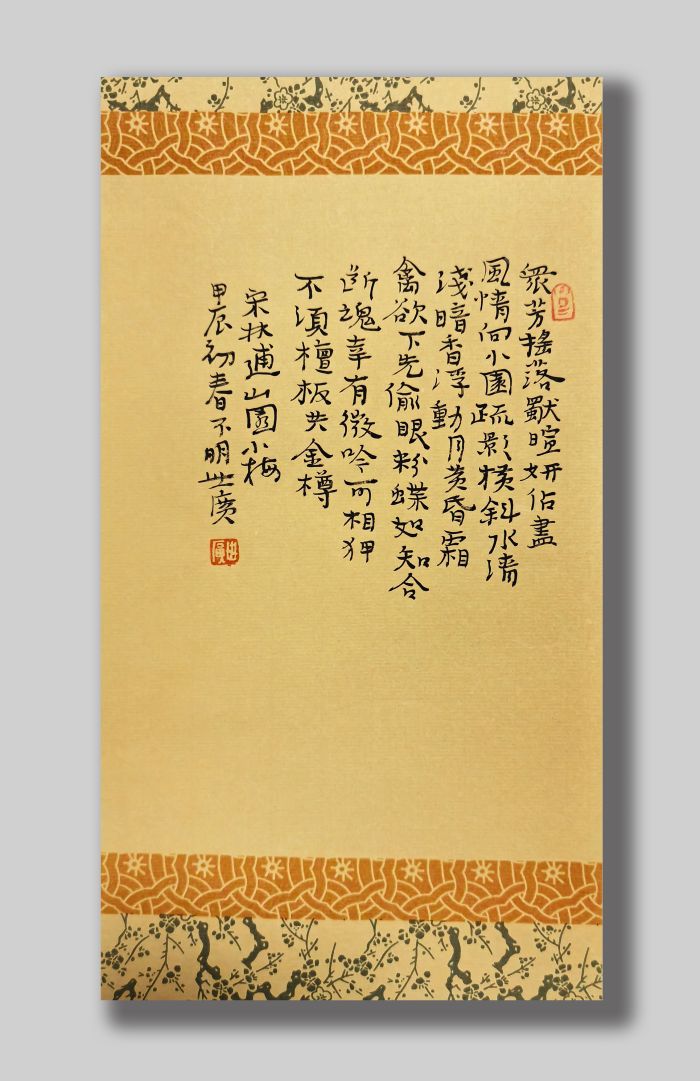 眾芳搖落獨暄妍佔盡
風情向小園疏影橫斜水清
淺暗香浮動月黃昏霜
禽欲下先偷眼粉蝶如知合
断魂幸有微吟可相狎
不須檀板共金樽
宋林逋山園小梅
甲辰初春不明世廣